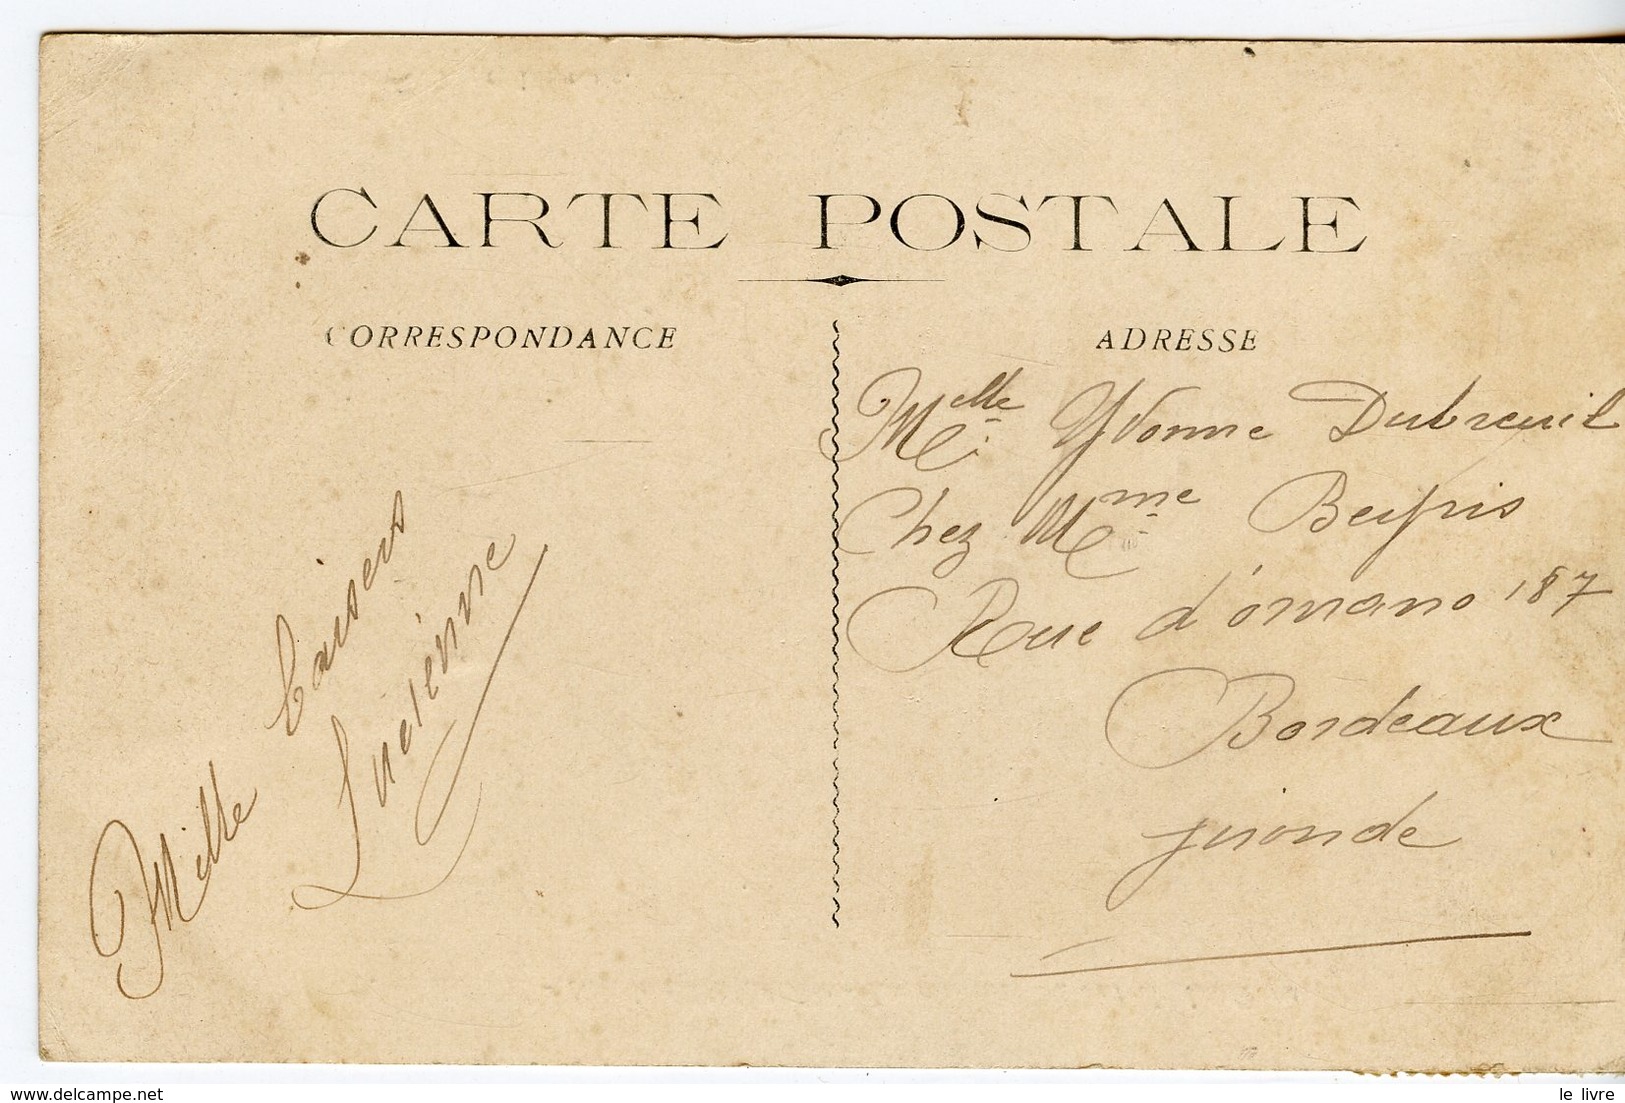 CARTE POSTALE
CORRESPONDANCE
Mille baisers
Lucienne
ADRESSE
Melle Yvonne Dubreuil
Chez Mme
Rue d'ornano 187
Bordeaux
gironde
delcampe.net
le livre